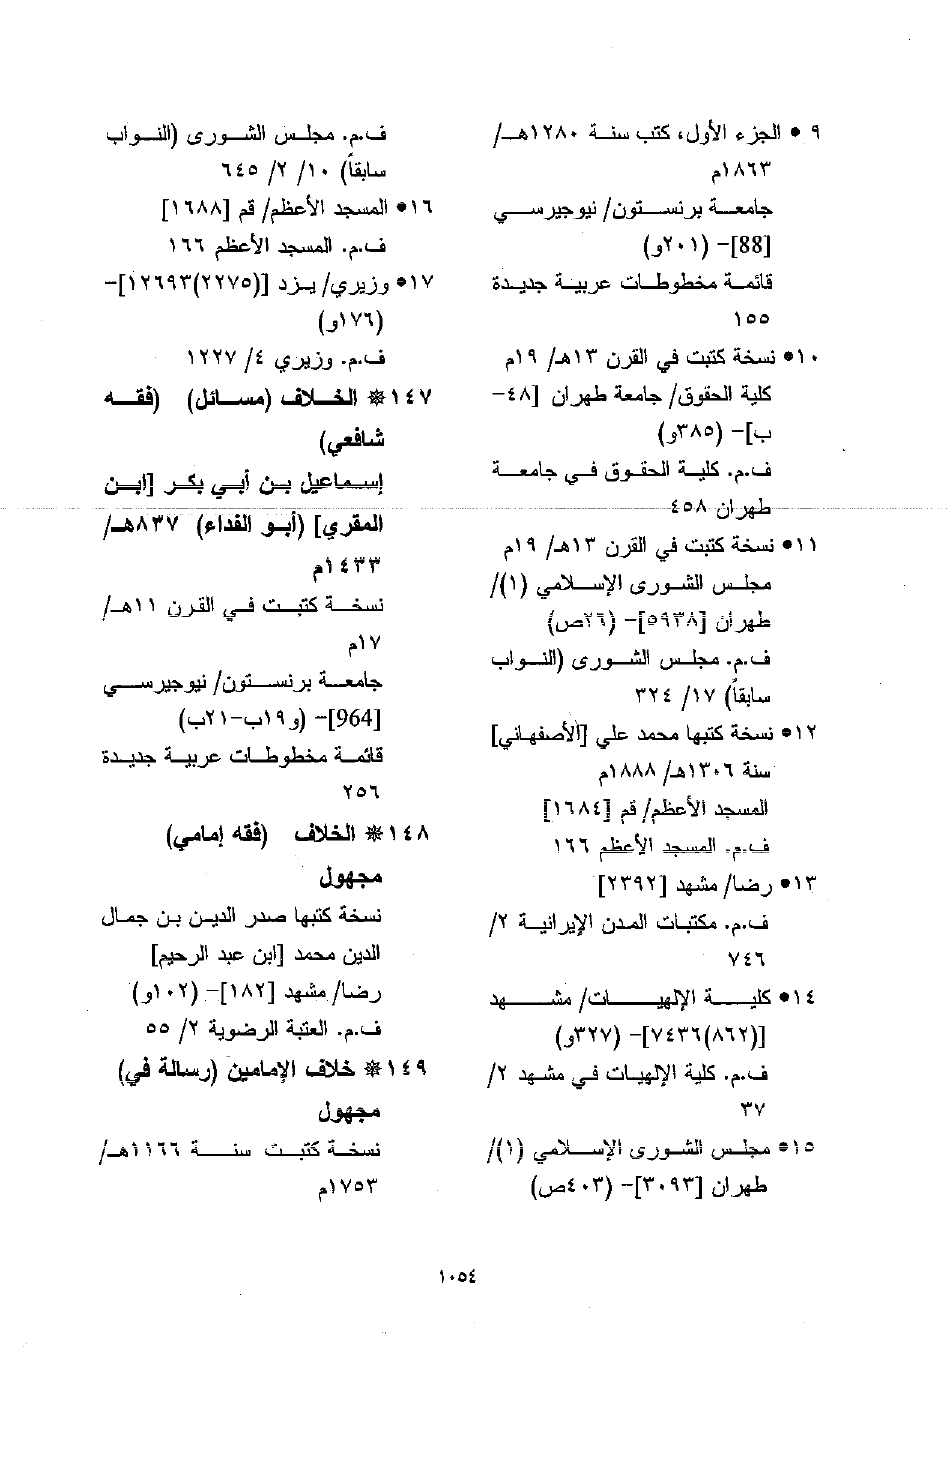 ٩ • الجزء الأول، كتب سنة ١٢٨٠هـ/
١٨٦٣م
جامعة برنستون/ نيوجيرسي
[88]- (٢٠١و)
قائمة مخطوطات عربية جديدة
١٥٥
١٠• نسخة كتبت في القرن ١٣هـ/ ١٩م
كلية الحقوق/ جامعة طهران [٤٨-
ب]- (٣٨٥و)
ف.م. كلية الحقوق في جامعة
طهران ٤٥٨
١١• نسخة كتبت في القرن ١٣هـ/ ١٩م
مجلس الشورى الإسلامي (١)/
طهران [٥٩٣٨]- (٢٦ص)
ف.م. مجلس الشورى (النواب
سابقاً) ١٧/ ٣٢٤
١٢• نسخة كتبها محمد علي [الأصفهاني]
سنة ١٣٠٦هـ/ ١٨٨٨م
المسجد الأعظم/ قم [١٦٨٤]
ف.م. المسجد الأعظم ١٦٦
١٣• رضا/ مشهد [٢٣٩٢]
ف.م. مكتبات المدن الإيرانية ٢/
٧٤٦
١٤• كلية الإلهيات/ مشهد
[(٨٦٢)٧٤٣٦]- (٣٢٧و)
ف.م. كلية الإلهيات في مشهد ٢/
٣٧
١٥• مجلس الشورى الإسلامي (١)/
طهران [٣٠٩٣]- (٤٠٣ص)
ف.م. مجلس الشورى (النواب
سابقاً) ١٠/ ٢/ ٦٤٥
١٦• المسجد الأعظم/ قم [١٦٨٨]
ف.م. المسجد الأعظم ١٦٦
١٧• وزيري/ يزد [(٢٢٧٥)١٢٦٩٣]-
(١٧٦و)
ف.م. وزيري ٤/ ١٢٢٧
١٤٧ ❋ الخلاف (مسائل) (فقه
شافعي)
إسماعيل بن أبي بكر [ابن
المقري] (أبو الفداء) ٨٣٧هـ/
١٤٣٣م
نسخة كتبت في القرن ١١هـ/
١٧م
جامعة برنستون/ نيوجيرسي
[964]- (و١٩ب-٢١ب)
قائمة مخطوطات عربية جديدة
٢٥٦
١٤٨ ❋ الخلاف (فقه إمامي)
مجهول
نسخة كتبها صدر الدين بن جمال
الدين محمد [ابن عبد الرحيم]
رضا/ مشهد [١٨٢]- (١٠٢و)
ف.م. العتبة الرضوية ٢/ ٥٥
١٤٩ ❋ خلاف الإمامين (رسالة في)
مجهول
نسخة كتبت سنة ١١٦٦هـ/
١٧٥٣م
١٠٥٤